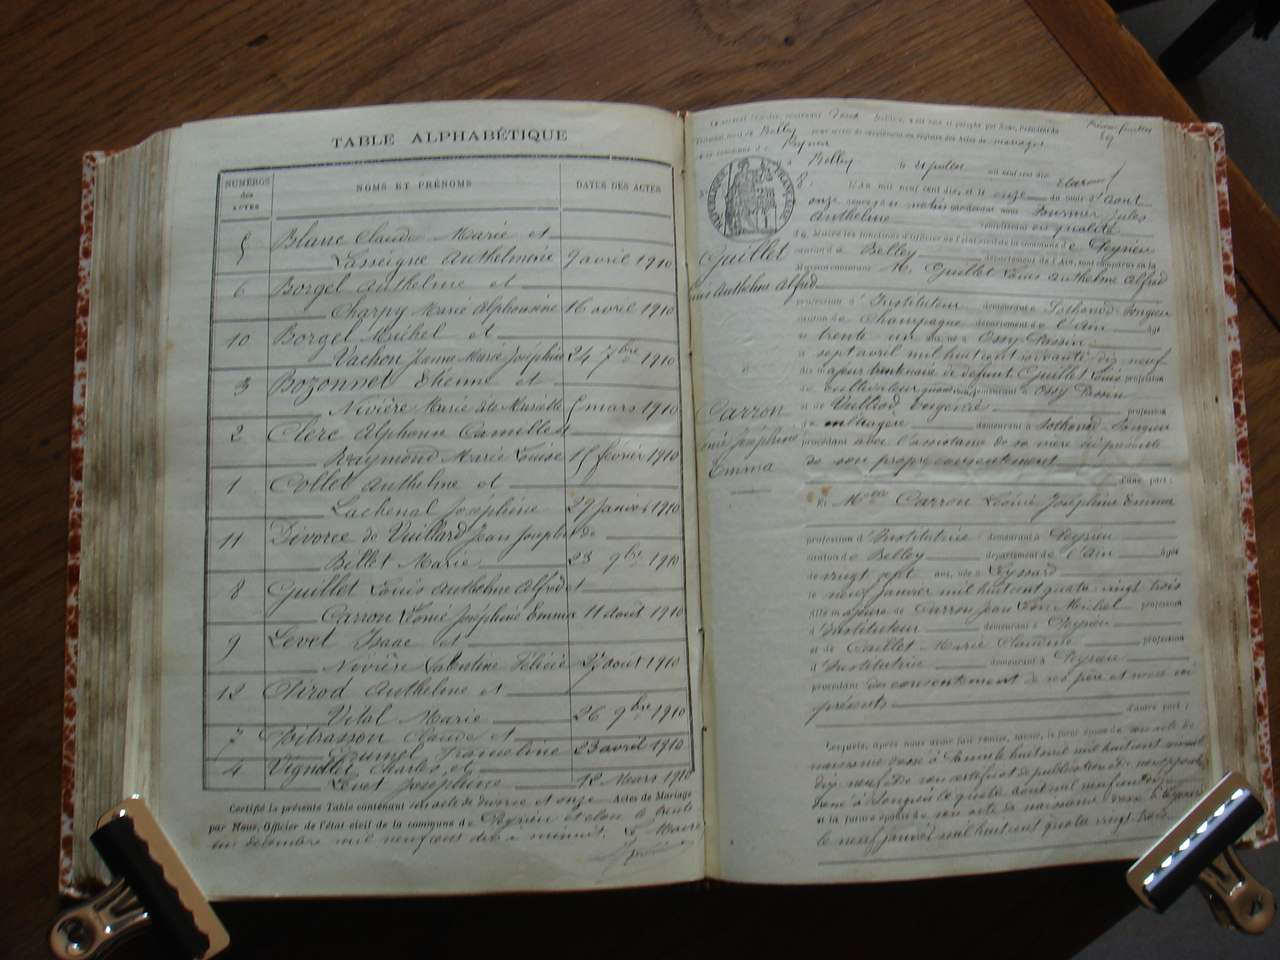 TABLE ALPHABÉTIQUE
NUMÉROS des ACTES
NOMS ET PRÉNOMS
DATES DES ACTES
5 Blanc Claude Marie et
Lasseigne Anthelmine 9 avril 1910
6 Borgel Anthelme et
Charpy Marie Alphonsine 16 avril 1910
10 Borgel Michel et
Vachon Jeanne Marie Joséphine 24 7bre 1910
3 Bozonnet Etienne et
Nivière Marie dite Musette 5 mars 1910
2 Clerc Alphonse Camille et
Raymond Marie Louise 15 février 1910
1 Collet Anthelme et
Lachenal Joséphine 29 Janvier 1910
11 Divorce de Vuillard Jean Joseph et de
Billet Marie 23 9bre 1910
8 Guillet Louis Anthelme Alfred et
Carron Léonie Joséphine Emma 11 Août 1910
9 Levet Isaac et
Nivière Valentine Félicie 27 août 1910
12 Pirod Anthelme et
Vital Marie 26 9bre 1910
7 Pitrasson Claude et
Brunel Francéline 23 avril 1910
4 Vignollet Charles et
Levet Joséphine 12 Mars 1910
Certifié la présente Table contenant un acte de divorce et onze Actes de Mariage
par Nous, Officier de l'état civil de la commune de Peyrieu et clos le trente
un décembre mil neuf cent dix à minuit. Le Maire
Belley
Peyrieu
mariages
à Belley le 31 juillet mil neuf cent dix
RÉPUBLIQUE FRANÇAISE
8. L'an mil neuf cent dix, et le onze du mois d'Août
onze heures du matin pardevant nous Fournier Jules
Anthelme remplissant en qualité
de Maire les fonctions d'Officier de l'état civil de la commune de Peyrieu
canton de Belley département de l'Ain, sont comparus en la
Maison commune M. Guillet Louis Anthelme Alfred
Guillet
Louis Anthelme Alfred
profession d'Instituteur demeurant à Lothonod Songieu
canton de Champagne département de l'Ain âgé
de trente un ans, né à Ossy Passin
le sept avril mil huit cent soixante dix neuf
fils majeur de défunt Guillet Louis profession
de cultivateur demeurant à Ossy Passin
et de Vulliod Eugénie profession
de ménagère demeurant à Lothonod Songieu
procédant avec l'assistance de sa mère ici présente
de son propre consentement
d'une part ;
Carron
Léonie Joséphine
Emma
Et Melle Carron Léonie Joséphine Emma
profession d'Institutrice demeurant à Peyrieu
canton de Belley département de l'Ain âgée
de vingt sept ans, née à Leyssard
le neuf janvier mil huit cent quatre vingt trois
fille majeure de Carron Jean Léon Michel profession
d'Instituteur demeurant à Peyrieu
et de Caillet Marie Claudine profession
d'Institutrice demeurant à Peyrieu
procédant du consentement de ses père et mère ici
présents
d'autre part ;
Lesquels, après nous avoir fait remise, savoir, le futur époux de son acte de
naissance dressé à Passin le huit avril mil huit cent soixante
dix neuf de son certificat de publication et de non opposition
dressé à Songieu le quatre août mil neuf cent dix
et la future épouse de son acte de naissance dressé à Leyssard
le neuf janvier mil huit cent quatre vingt trois